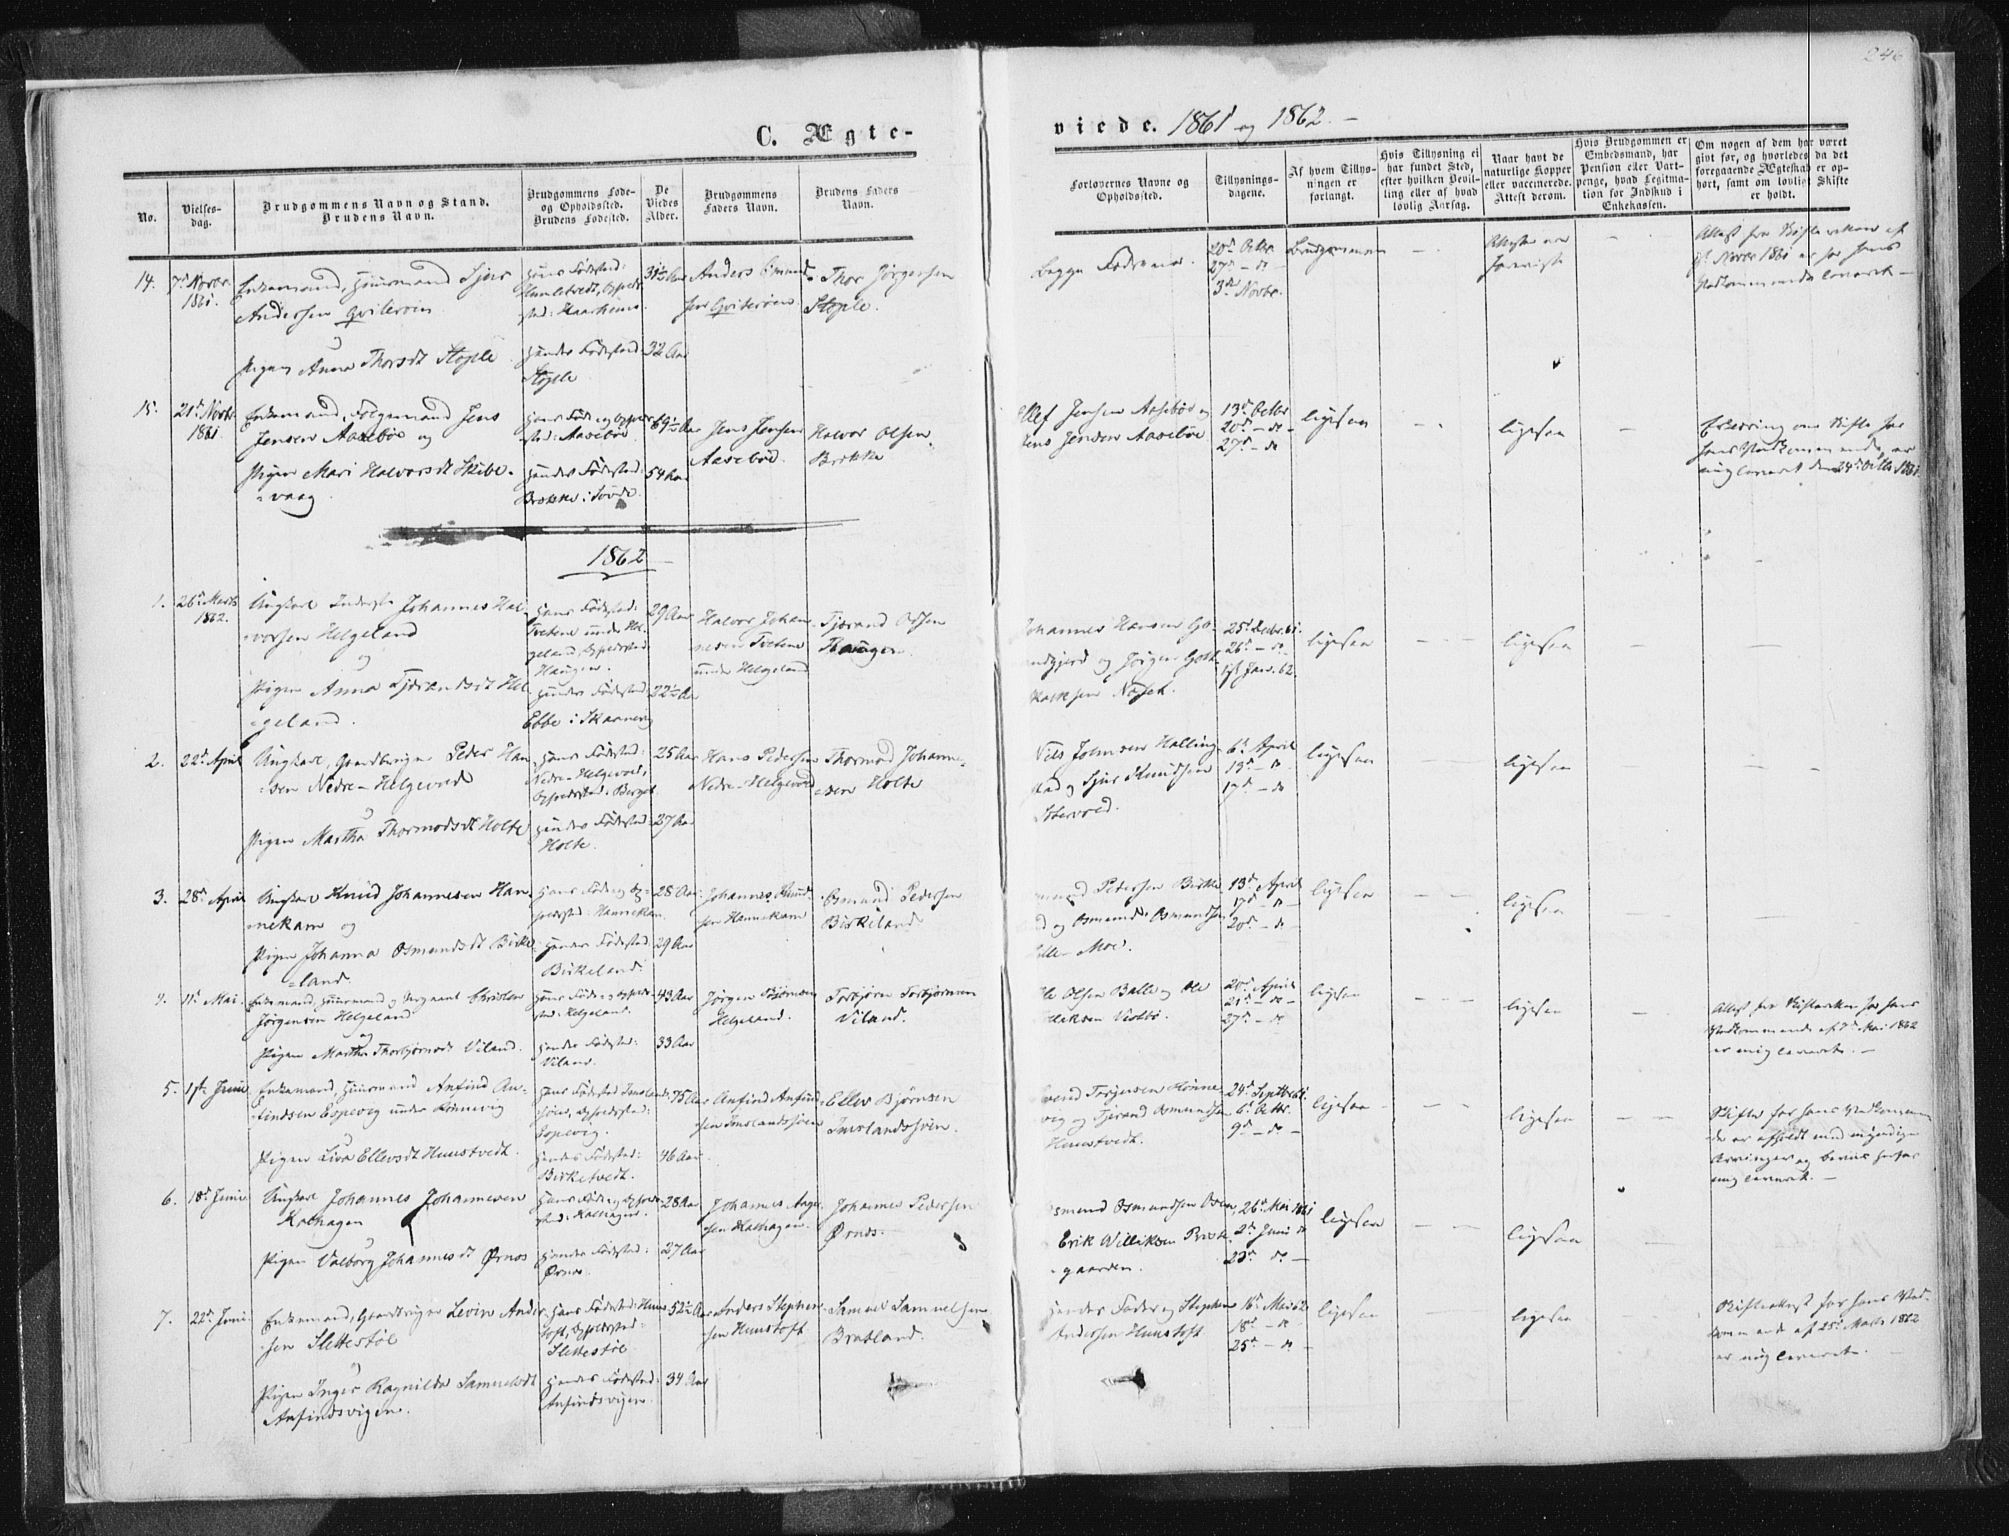 246
C. Ægte-
viede. 1861 og 1862.
No.
Vielses-
dag.
Brudgommens Navn og Stand.
Brudens Navn.
Brudgommens Føde-
og Opholdssted.
Brudens Fødested.
De
Viedes
Alder.
Brudgommens
Faders Navn.
Brudens Faders
Navn.
Forlovernes Navne og
Opholdssted.
Tillysnings-
dagene.
Af hvem Tillys-
ningen er
forlangt.
Hvis Tillysning ei
har fundet Sted,
efter hvilken Bevil-
ling eller af hvad
lovlig Aarsag.
Naar havt de
naturlige Kopper
eller vaccinerede.
Attest derom.
Hvis Brudgommen er
Embedsmand, har
Pension eller Vart-
penge, hvad Legitima-
tion for Indskud i
Enkekassen.
Om nogen af dem har været
gift før, og hvorledes da det
foregaaende Ægteskab er op-
hørt, samt om lovligt Skifte
er holdt.
14.
7d Novbr
1861.
Enkemand, Huusmand Sjur
Andersen Qviteroen
Pigen Anna Thorsdt Stople
Hans Fødested:
sted:
Hendes Fødested:
Stople
31½ Aar
32 Aar
Anders
sen Qviteroen.
Thor Jørgensen
Stople.
Begges Fædrene.
20d Octbr.
27d - do -
3d Novbr.
Brudgommen
15.
21d Novbr
1861
Enkemand, Følgemand Jens
Jensen Aasebøe og
Pigen Mari Halvorsdt Skibe-
vaag
Hans Føde og Opholds-
sted: Aasebøe
Hendes Fødested:
Brekke i Søvde.
69½ Aar
54 Aar
Jens Jensen
Aasebøe.
Halvor Olsen
Brekke
Ellef Jensen Aasebøe og
Jens Jensen Aasebøe.
13d Octbr
20d - do -
27d - do
ligesaa
ligesaa
Erklæring om Skifte for
hans Vedkommende, er
mig leveret den 24d Octbr 1861.
1862
1.
26d Marts
1862.
Ungkarl Inderst Johannes Hal-
vorsen Helgeland
og
Pigen Anna Tjerandsdt Hel-
geland.
Hans Fødested:
Tvetene under Hel-
geland, Opholdssted
Haugen.
Hendes Fødested:
Ebbe i Skaanevig
29 Aar
22½ Aar
Halvor Johan-
nesen Tvetene
under Helgeland
Tjerand Olsen
Haugen.
Johannes Hansen
og Jørgen
25d Decbr. 61.
26d - do -
1st Janr. 62.
ligesaa
ligesaa
2.
22d April
Ungkarl, Gaardbruger Peder Han-
sen Nedre-Helgevold
Pigen Martha Thormodsdt Holte
Hans Fødested:
Nedre-Helgevold,
Opholdssted: Berget.
Hendes Fødested:
Holte.
25 Aar
27 Aar
Hans Pedersen
Nedre-Helgevold
Thormod Johanne-
sen Holte
Nils Johnsen Halling-
stad og Sjur Knudsen
6d April
13d - do -
17d - do
ligesaa
ligesaa
3.
28d April
Ungkarl Knud Johannesen Han-
nekam og
Pigen Johanna Osmundsdt Birke-
land
Hans Føde og Op-
holdssted: Hannekam.
Hendes Fødested:
Birkeland.
28 Aar
29 Aar
Johannes Knud-
sen Hannekam
Osmund Pedersen
Birkeland
Pedersen Birke-
og Osmund Osmundsen
Lille-Moe.
13d April
17d - do -
20d - do
ligesaa
ligesaa
4.
11d Mai.
Enkemand, Huusmand og Sergeant Christen
Jørgensen Helgeland
og
Pigen Martha Thorbjørnsdt Viland.
Hans Føde og Opholds-
sted: Helgeland.
Hendes Fødested:
Viland.
43 Aar
33 Aar
Jørgen
Helgeland.
Torbjørn Torbjørnsen
Viland.
Ole Olsen Balle og Ole
20d April
21d - do -
27d - do
ligesaa
ligesaa
Attest fra Skifteretten for hans
Vedkommende af 7d Mai 1862
er mig leveret.
5.
1st Juni
Enkemand, Huusmand Anfind An-
findsen Espevig under Rønnevig
Pigen Liva Ellevsdt Huustvedt.
Hans Fødested Imslands-
sjøen, Opholdssted:
Espevig.
Hendes Fødested:
Birketvedt.
75 Aar
46 Aar
Anfind Anfind-
sen Imslandssjøen
Ellev Bjørnsen
Imslandssjøen.
Torjersen Rønne-
vig og Tjerand Osmundsen
Huustvedt.
24d Septbr 61
6d Octbr.
9d - do -
ligesaa
ligesaa
Skifte for hans Vedkommen-
de er afholdt med myndige
Arvinger og beviis herfor
mig leveret.
6.
18d Juni
Ungkarl Johannes Johannesen
Kalhagen
Pigen Valborg Johannesdt Ørnes
Hans Føde og Opholds-
sted: Kalhagen.
Hendes Fødested:
Ørnes.
28 Aar
27 Aar
Johannes Aage-
sen Kalhagen.
Johannes Pedersen
Ørnes.
Osmund Osmundsen
Erik Villiksen Præste-
gaarden.
26d Mai 1861
2d Juni do
23d do -
ligesaa
ligesaa
7.
22d Juni
Enkemand, Gaardbruger Levin Ander-
sen Slettestøl
Pigen Inger Ragnilda Samuelsdt
Anfindsvigen.
Hans Fødested: Huus-
toft, Opholdssted:
Slettestøl
Hendes Fødested:
Anfindsvigen
52½ Aar
34 Aar
Anders Stephen-
sen Huustoft
Samuel Samuelsen
Bratland.
Hendes Fader og Stephen
Andersen Huustoft
16d Mai 62
18d - do
25d - do -
ligesaa
ligesaa
Skifteattest for hans Ved-
kommende af 25d Marts 1862
er mig leveret.